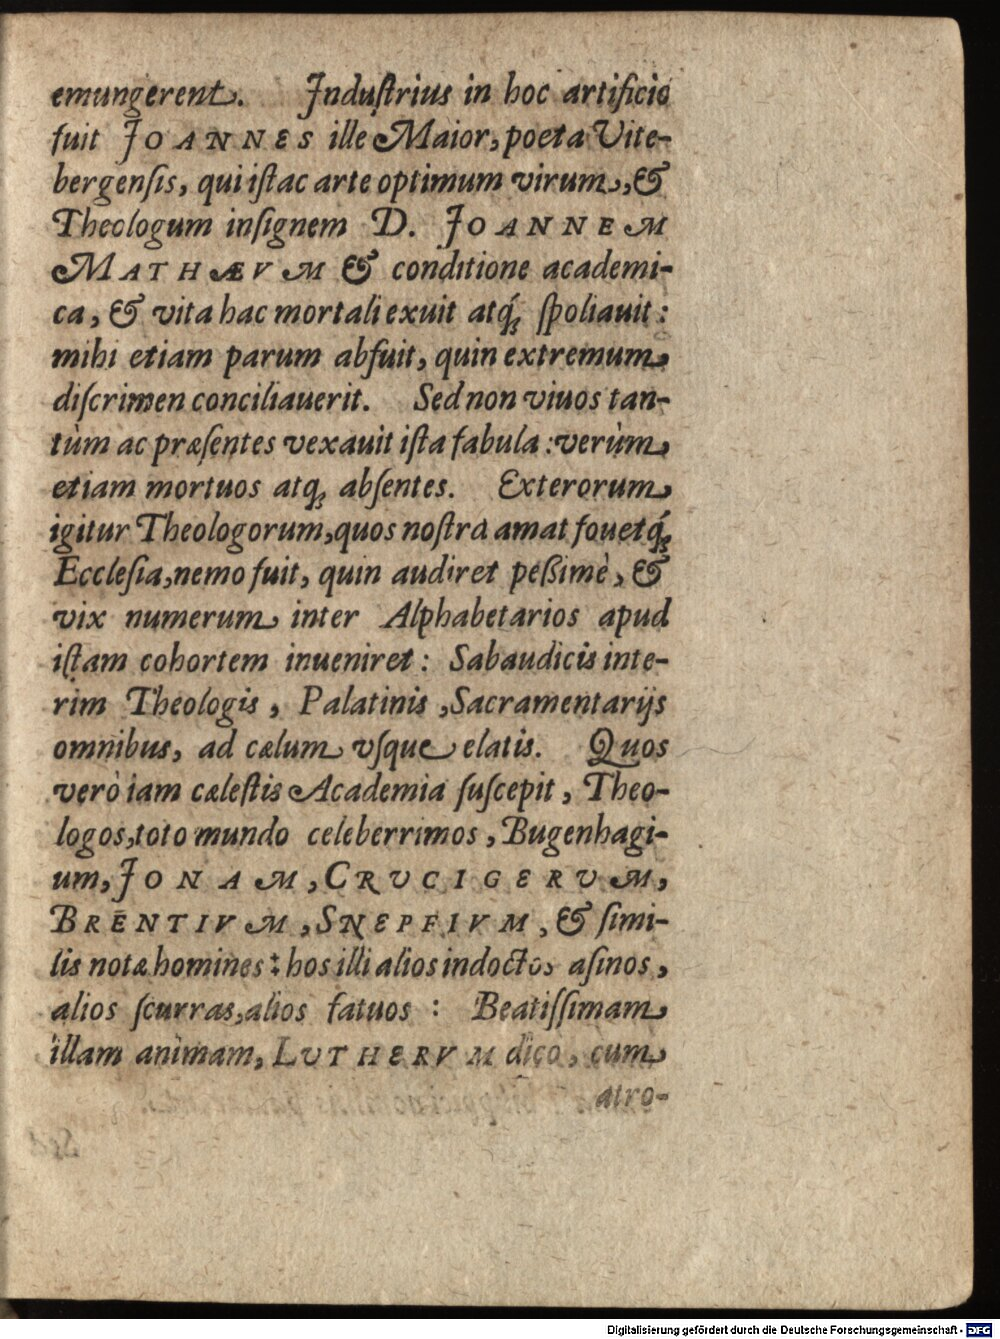 emungerent. Induſtrius in hoc artificio
fuit IOANNES ille Maior, poeta Vite-
bergenſis, qui iſtac arte optimum virum, &
Theologum inſignem D. IOANNEM
MATHÆVM & conditione academi-
ca, & vita hac mortali exuit atq́; ſpoliauit:
mihi etiam parum abfuit, quin extremum
diſcrimen conciliauerit. Sed non viuos tan-
tùm ac præſentes vexauit iſta fabula: verùm
etiam mortuos atq; abſentes. Exterorum
igitur Theologorum, quos noſtra amat fouetq́;
Eccleſia, nemo fuit, quin audiret peßimè, &
vix numerum inter Alphabetarios apud
iſtam cohortem inueniret: Sabaudicis inte-
rim Theologis, Palatinis, Sacramentarijs
omnibus, ad cælum vſque elatis. Quos
verò iam cæleſtis Academia ſuſcepit, Theo-
logos, toto mundo celeberrimos, Bugenhagi-
um, IONAM, CRVCIGERVM,
BRĒNTIVM, SNEPFIVM, & ſimi-
lis notæ homines: hos illi alios indoctos aſinos,
alios ſcurras, alios fatuos: Beatiſſimam
illam animam, LVTHERVM dico, cum
atro-
Digitalisierung gefördert durch die Deutsche Forschungsgemeinschaft - DFG